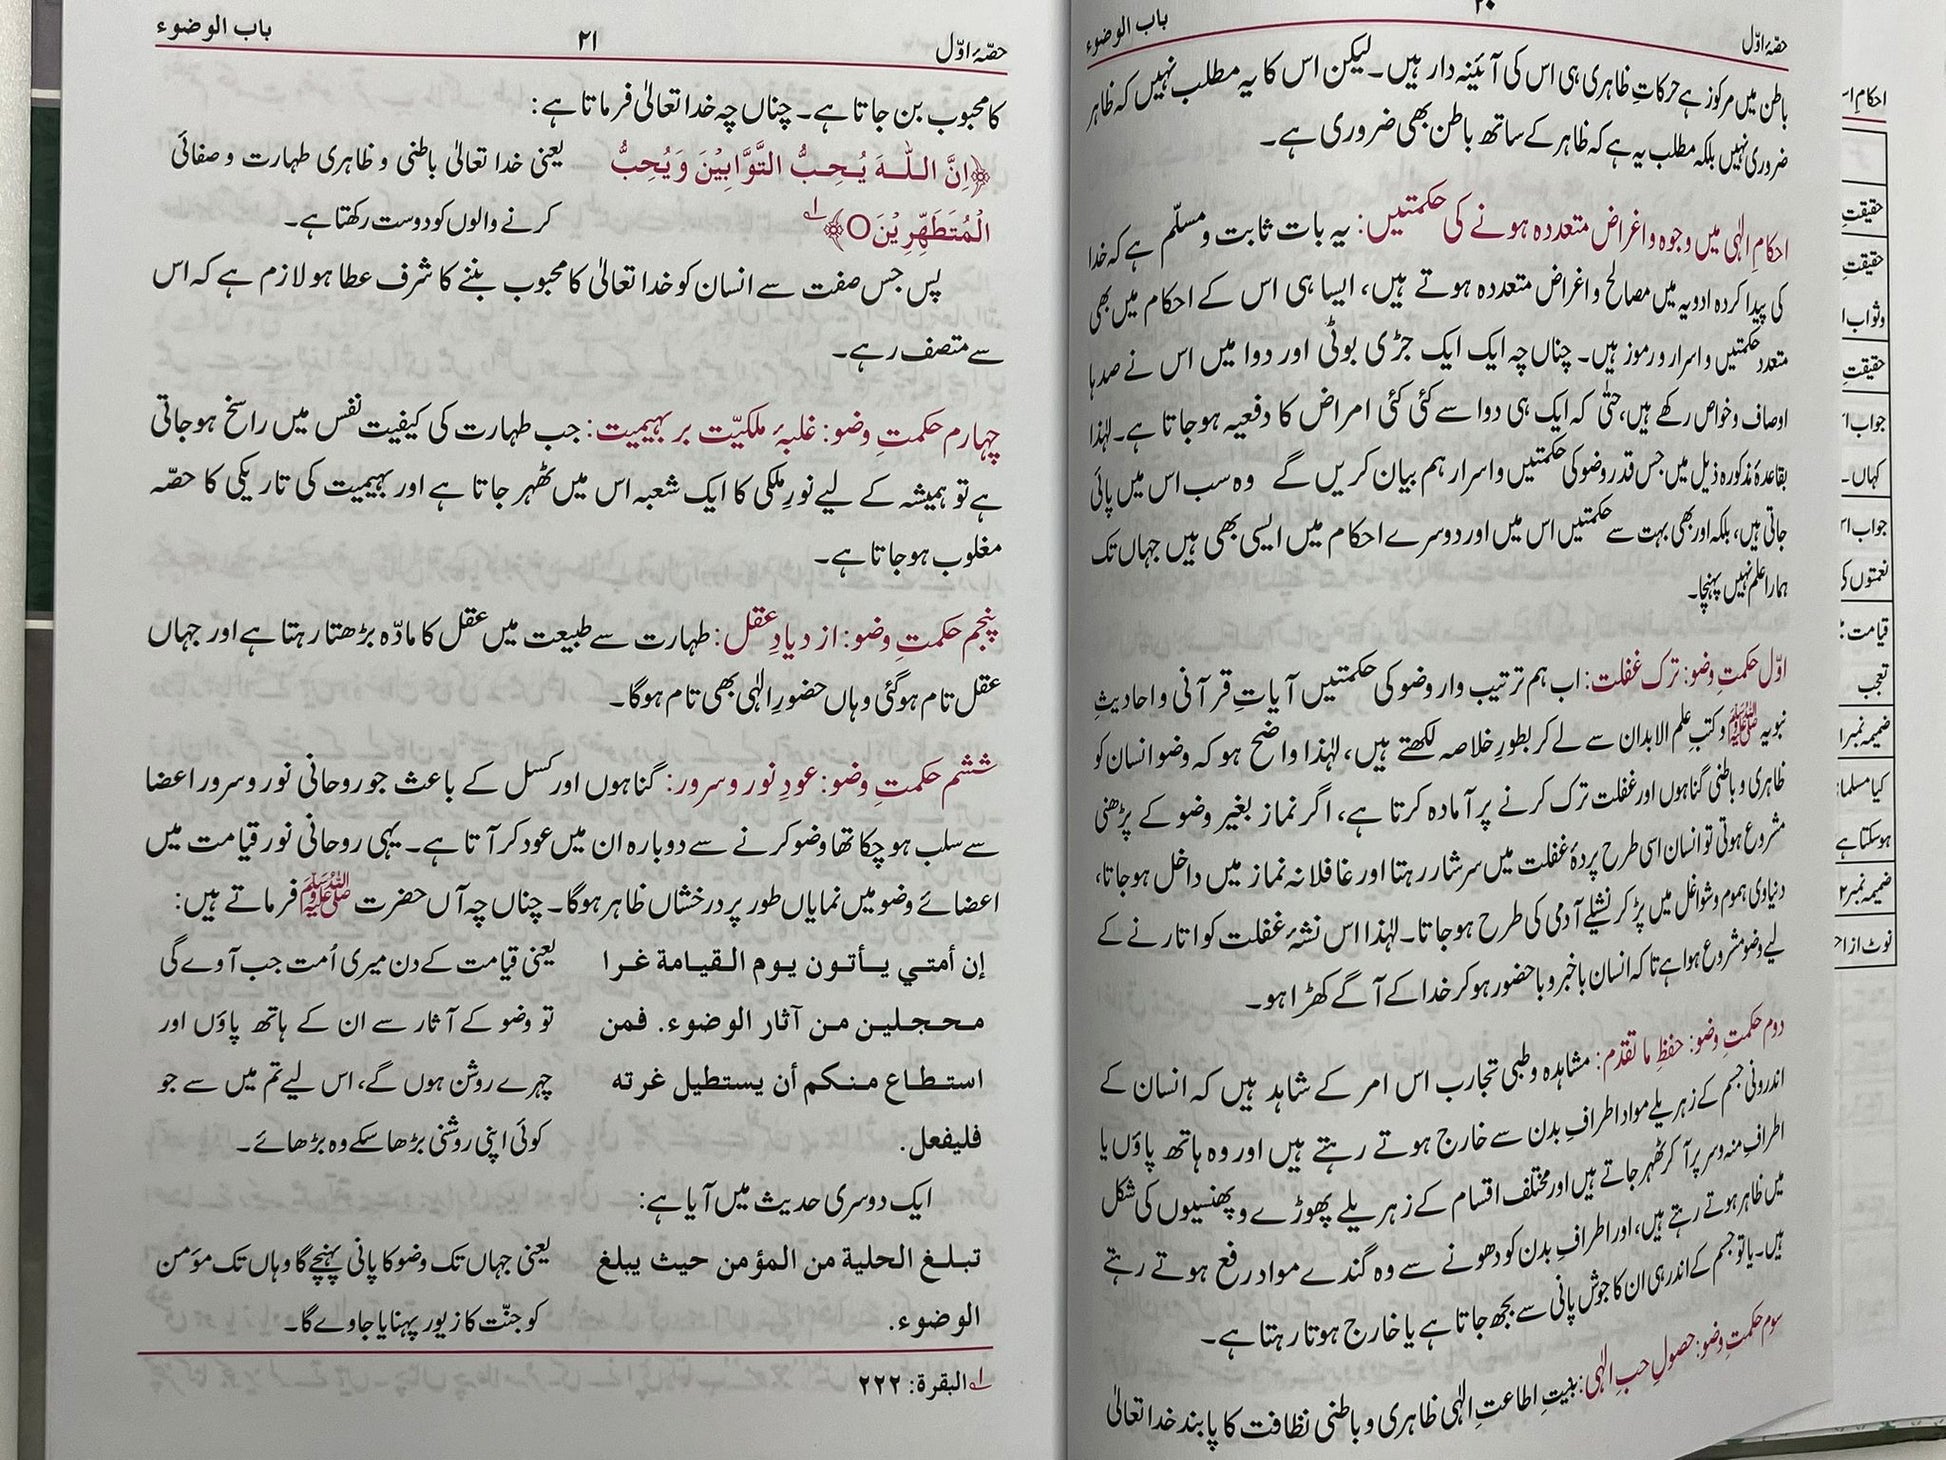 حصّۂ اوّل ۲۰ باب الوضوء
باطن میں مرکوز ہے حرکاتِ ظاہری ہی اس کی آئینہ دار ہیں۔ لیکن اس کا یہ مطلب نہیں کہ ظاہر
ضروری نہیں بلکہ مطلب یہ ہے کہ ظاہر کے ساتھ باطن بھی ضروری ہے۔
احکامِ الٰہی میں وجوہ و اغراض متعددہ ہونے کی حکمتیں: یہ بات ثابت و مسلّم ہے کہ خدا
کی پیدا کردہ ادویہ میں مصالح و اغراض متعددہ ہوتے ہیں، ایسا ہی اس کے احکام میں بھی
متعدد حکمتیں و اسرار و رموز ہیں۔ چناں چہ ایک ایک جڑی بوٹی اور دوا میں اس نے صدہا
اوصاف و خواص رکھے ہیں، حتٰی کہ ایک ہی دوا سے کئی کئی امراض کا دفعیہ ہوجاتا ہے۔ لہٰذا
بقاعدۂ مذکورہ ذیل میں جس قدر وضو کی حکمتیں و اسرار ہم بیان کریں گے وہ سب اس میں پائی
جاتی ہیں، بلکہ اور بھی بہت سے حکمتیں اس میں اور دوسرے احکام میں ایسی بھی ہیں جہاں تک
ہمارا علم نہیں پہنچا۔
اوّل حکمتِ وضو: ترک غفلت: اب ہم ترتیب وار وضو کی حکمتیں آیاتِ قرآنی و احادیثِ
نبویہ ﷺ و کتبِ علم الابدان سے لے کر بطورِ خلاصہ لکھتے ہیں، لہٰذا واضح ہو کہ وضو انسان کو
ظاہری و باطنی گناہوں اور غفلت ترک کرنے پر آمادہ کرتا ہے، اگر نماز بغیر وضو کے پڑھنی
مشروع ہوتی تو انسان اسی طرح پردۂ غفلت میں سرشار رہتا اور غافلانہ نماز میں داخل ہوجاتا،
دنیاوی ہموم و شواغل میں پڑ کر نشیلے آدمی کی طرح ہوجاتا۔ لہٰذا اس نشۂ غفلت کو اتارنے کے
لیے وضو مشروع ہوا ہے تاکہ انسان باخبر و باحضور ہوکر خدا کے آگے کھڑا ہو۔
دوم حکمتِ وضو: حفظِ ما تقدم: مشاہدہ و طبی تجارب اس امر کے شاہد ہیں کہ انسان کے
اندرونی جسم کے زہریلے مواد اطرافِ بدن سے خارج ہوتے رہتے ہیں اور وہ ہاتھ پاؤں یا
اطرافِ منہ و سر پر آکر ٹھہر جاتے ہیں اور مختلف اقسام کے زہریلے پھوڑے و پھنسیوں کی شکل
میں ظاہر ہوتے رہتے ہیں، اور اطرافِ بدن کو دھونے سے وہ گندے مواد رفع ہوتے رہتے
ہیں۔ یا تو جسم کے اندر ہی ان کا جوش پانی سے بجھ جاتا ہے یا خارج ہوتا رہتا ہے۔
سوم حکمتِ وضو: حصولِ حب الٰہی: بنیتِ اطاعتِ الٰہی ظاہری و باطنی نظافت کا پابند خدا تعالیٰ
حصّۂ اوّل ۲۱ باب الوضوء
کا محبوب بن جاتا ہے۔ چناں چہ خدا تعالیٰ فرماتا ہے:
﴿اِنَّ اللّٰهَ يُحِبُّ التَّوَّابِيْنَ وَيُحِبُّ
الْمُتَطَهِّرِيْنَ﴾ ؎۱
یعنی خدا تعالیٰ باطنی و ظاہری طہارت و صفائی
کرنے والوں کو دوست رکھتا ہے۔
پس جس صفت سے انسان کو خدا تعالیٰ کا محبوب بننے کا شرف عطا ہو لازم ہے کہ اس
سے متصف رہے۔
چہارم حکمتِ وضو: غلبۂ ملکیّت بر بہیمیت: جب طہارت کی کیفیت نفس میں راسخ ہوجاتی
ہے تو ہمیشہ کے لیے نورِ ملکی کا ایک شعبہ اس میں ٹھہر جاتا ہے اور بہیمیت کی تاریکی کا حصّہ
مغلوب ہوجاتا ہے۔
پنجم حکمتِ وضو: ازدیادِ عقل: طہارت سے طبیعت میں عقل کا مادّہ بڑھتا رہتا ہے اور جہاں
عقل تام ہوگئی وہاں حضورِ الٰہی بھی تام ہوگا۔
ششم حکمتِ وضو: عودِ نور و سرور: گناہوں اور کسل کے باعث جو روحانی نور و سرور اعضا
سے سلب ہوچکا تھا وضو کرنے سے دوبارہ ان میں عود کر آتا ہے۔ یہی روحانی نور قیامت میں
اعضائے وضو میں نمایاں طور پر درخشاں ظاہر ہوگا۔ چناں چہ آں حضرت ﷺ فرماتے ہیں:
إن أمتي يأتون يوم القيامة غرا
محجلين من آثار الوضوء. فمن
استطاع منكم أن يستطيل غرته
فليفعل.
یعنی قیامت کے دن میری اُمت جب آوے گی
تو وضو کے آثار سے ان کے ہاتھ پاؤں اور
چہرے روشن ہوں گے، اس لیے تم میں سے جو
کوئی اپنی روشنی بڑھا سکے وہ بڑھائے۔
ایک دوسری حدیث میں آیا ہے:
تبلغ الحلية من المؤمن حيث يبلغ
الوضوء.
یعنی جہاں تک وضو کا پانی پہنچے گا وہاں تک مؤمن
کو جنّت کا زیور پہنایا جاوے گا۔
؎۱ البقرة: ۲۲۲
حقیقتِ
حقیقتِ
حقیقتِ
کہاں
نعمتوں کی
قیامت
تعجب
ضمیمہ نمبر۱
ہوسکتا ہے
ضمیمہ نمبر۲